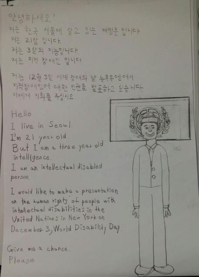 안녕하세요?
저는 한국 서울에 살고 있는
저는 21살 입니다
저는 3살의 지능입니다
저는 지적 장애인 입니다
저는 12월 3일 세계 장애인의 날
지적장애인의
Hello
I live in Seoul
I'm 21 year old.
But I am a three year old
intelligence.
I am an intellectual disabled
person.
I would like to make a presentation
on the human rights of people with
intellectual disabilities in the
United Nations in New York on
December 3, World Disability Day
Give me a chance.
Please